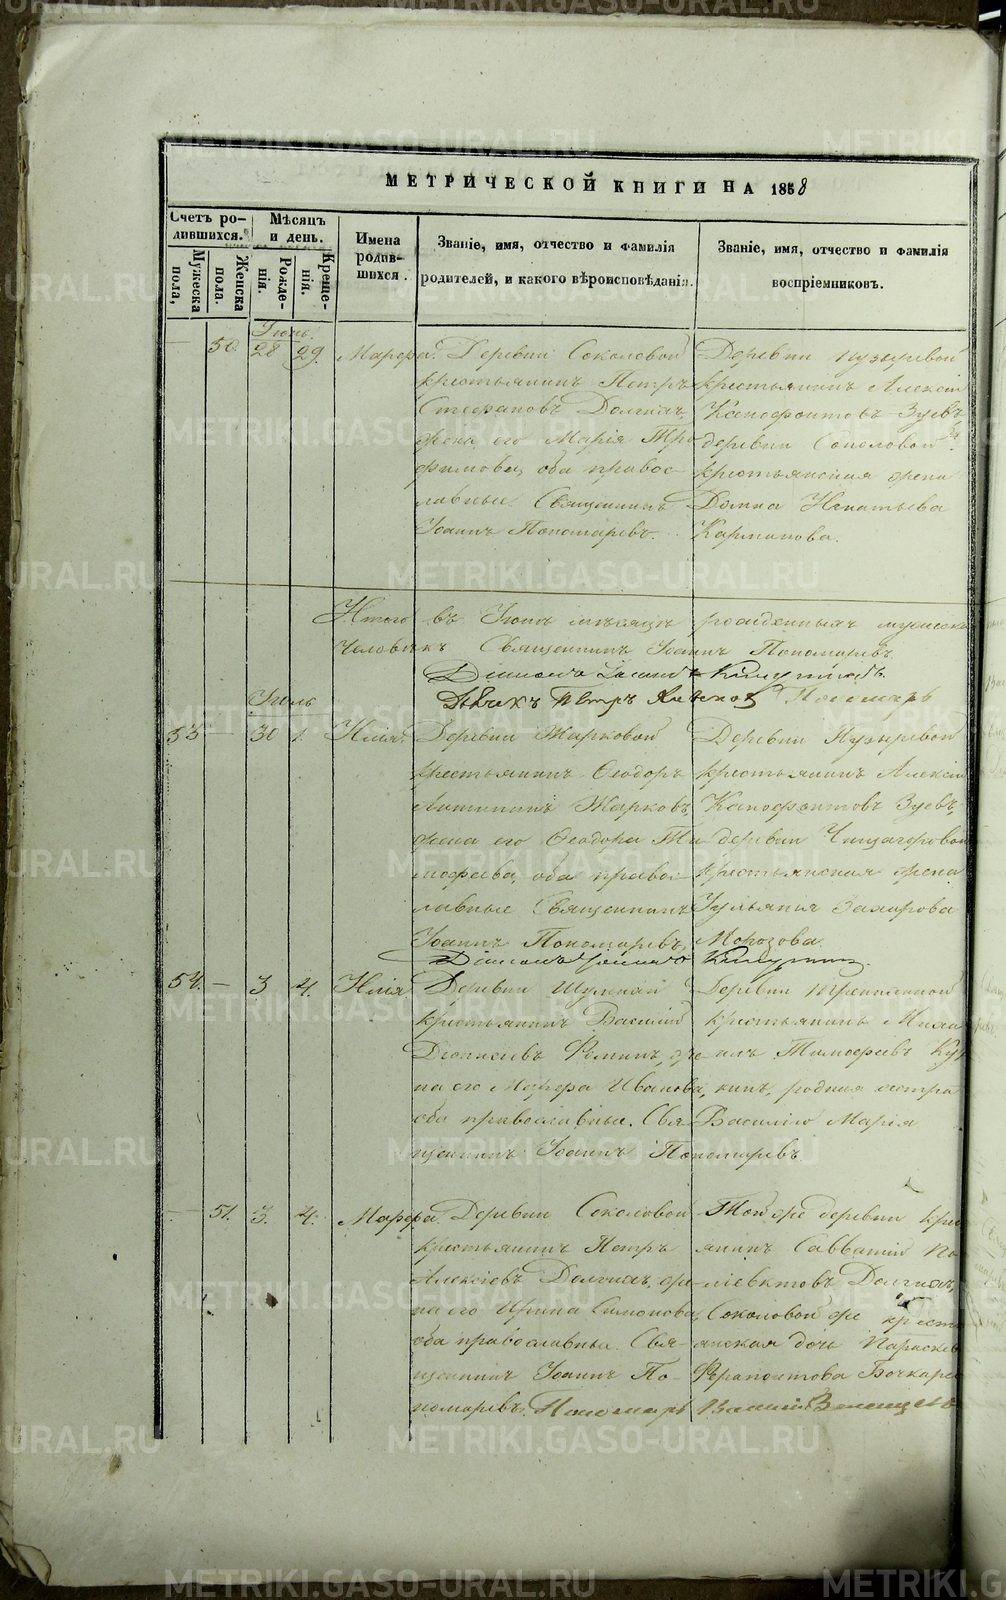 МЕТРИЧЕСКОЙ КНИГИ НА 1858
Счетъ ро-
дившихся.
Мужеска
пола,
Женска
пола.
Мѣсяцъ
и день.
Рожде-
нія.
Креще-
нія.
Имена
родив-
шихся.
Званіе, имя, отчество и фамилія
родителей, и какого вѣроисповѣданія.
Званіе, имя, отчество и фамилія
воспріемниковъ.
Іюнь
— 50. 28 29. Марѳа.
Деревни Соколовой
крестьянинъ Петръ
Стефановъ Долгихъ,
жена его Марія Тро
фимова, оба правос-
лавные. Священникъ
Іоаннъ Пономаревъ.
Деревни Пузыревой
крестьянинъ Алексій
Ксенофонтовъ Зуевъ
деревни Соколовой
крестьянская жена
Домна Игнатьева
Карманова.
Итого въ Іюнѣ мѣсяцѣ рожденныхъ мужеска
человѣкъ Священникъ Іоаннъ Пономаревъ.
Діаконъ
Дьячекъ Петръ
Іюль
53 — 30 1. Илія.
Деревни Жарковой
крестьянинъ Ѳеодоръ
Антипинъ Жарковъ,
жена его Ѳеодора Ти
мофеева, оба правос-
лавные Священникъ
Іоаннъ Пономаревъ,
Діаконъ
Деревни Пузыревой
крестьянинъ Алексій
Ксенофонтовъ Зуевъ,
деревни
крестьянская жена
Захарова
Морозова.
54. — 3 4. Илія
Деревни
крестьянинъ Василій
Діонисіевъ Фоминъ, же
на его Марѳа Иванова,
оба православные. Свя
щенникъ Іоаннъ Пономаревъ
Деревни
крестьянинъ Миха
илъ Тимофеевъ
родная сестра
Василію Марія
— 51. 3. 4. Марѳа.
Деревни Соколовой
крестьянинъ Петръ
Алексіевъ Долгихъ, же
на его Ирина Симонова,
оба православные. Свя-
щенникъ Іоаннъ По-
номаревъ. Пономарь
Той же деревни крес
янинъ Савватій По
ліевктовъ Долгихъ,
Соколовой же кресть
янская дочь Параскев
Ферапонтова Бочкарев
METRIKI.GASO-URAL.RU